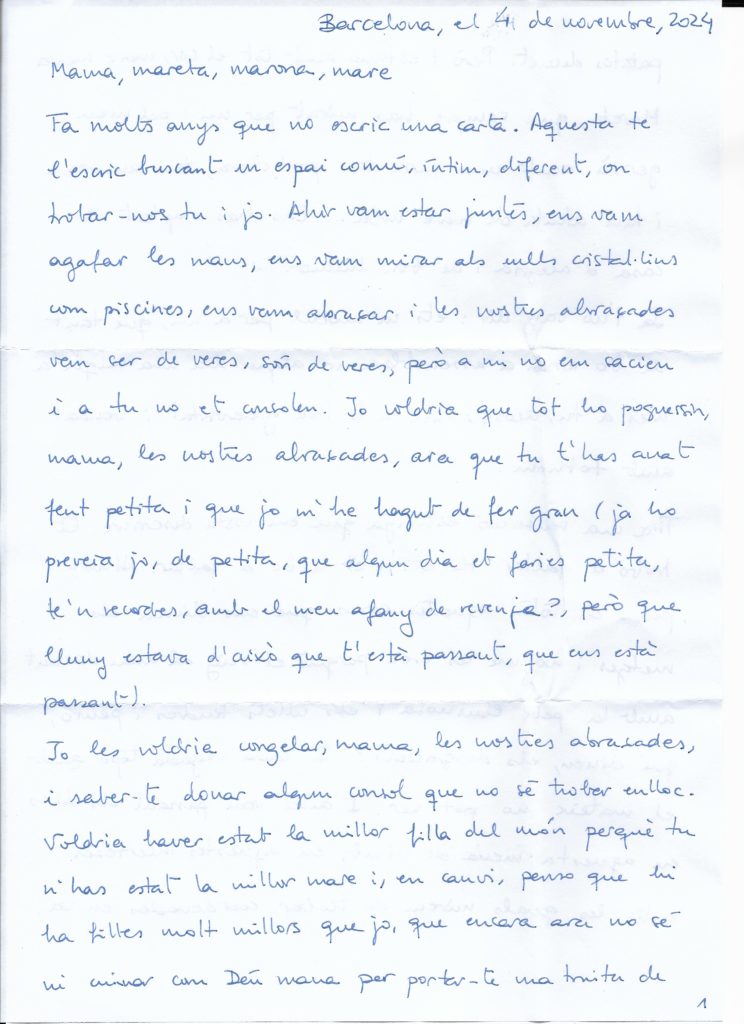 Barcelona, el 4 de novembre, 2024
Mama, mareta, marona, mare
Fa molts anys que no escric una carta. Aquesta te
l'escric buscant un espai comú, íntim, diferent, on
trobar-nos tu i jo. Ahir vam estar juntes, ens vam
agafar les mans, ens vam mirar als ulls cristal·lins
com piscines, ens vam abraçar i les nostres abraçades
vem ser de veres, són de veres, però a mi no em sacien
i a tu no et consolen. Jo voldria que tot ho poguessin,
mama, les nostres abraçades, ara que tu t'has anat
fent petita i que jo m'he hagut de fer gran (ja ho
preveia jo, de petita, que algun dia et faries petita,
te'n recordes, amb el meu afany de revenja?, però que
lluny estava d'això que t'està passant, que ens està
passant).
Jo les voldria congelar, mama, les nostres abraçades,
i saber-te donar algun consol que no sé trobar enlloc.
Voldria haver estat la millor filla del món perquè tu
m'has estat la millor mare i, en canvi, penso que hi
ha filles molt millors que jo, que encara ara no sé
ni cuinar com Déu mana per portar-te una truita de
1